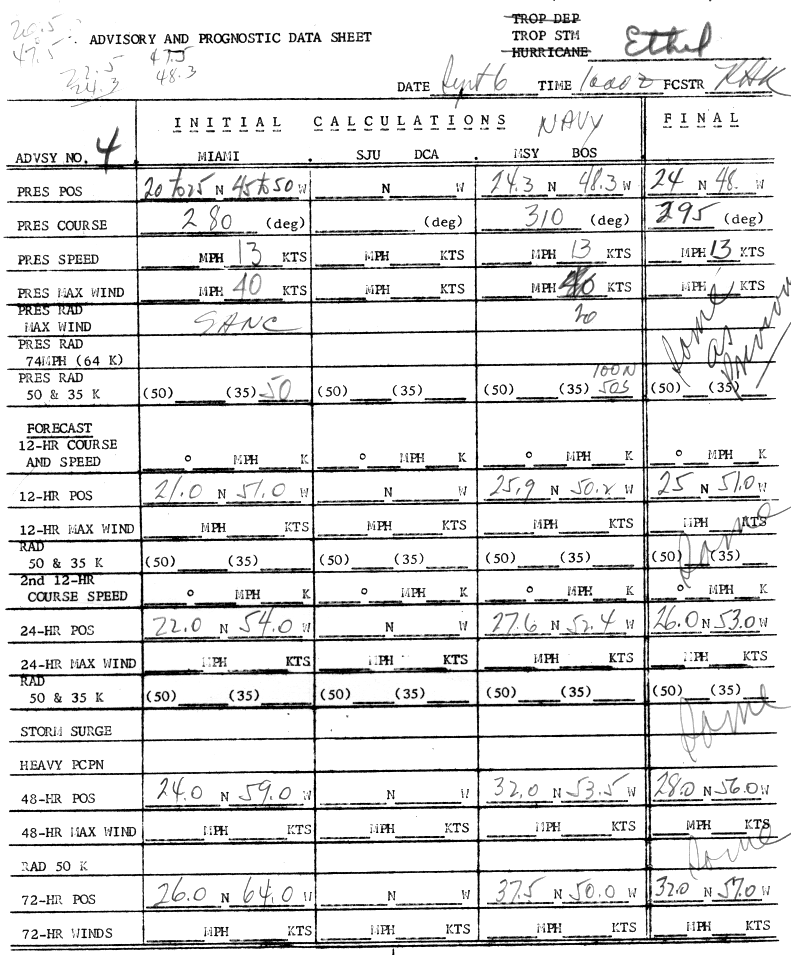 20.5
47.5
22.5
24.3
47.5
48.3
ADVISORY AND PROGNOSTIC DATA SHEET
TROP DEP
TROP STM
HURRICANE
Ethel
DATE Sept 6 TIME 1000 Z FCSTR RHK
INITIAL CALCULATIONS NAVY FINAL
ADVSY NO. 4 MIAMI . SJU DCA . MSY BOS
PRES POS 20 to 25 N 45 to 50 W N W 24.3 N 48.3 W 24 N 48. W
PRES COURSE 280 (deg) (deg) 310 (deg) 295 (deg)
PRES SPEED MPH 13 KTS MPH KTS MPH 13 KTS MPH 13 KTS
PRES MAX WIND MPH 40 KTS MPH KTS MPH 40 KTS MPH KTS
PRES RAD
MAX WIND SANC 20 Same as previous
PRES RAD
74MPH (64 K)
PRES RAD 100N
50 & 35 K (50) (35) 50 (50) (35) (50) (35) 50S (50) (35)
FORECAST
12-HR COURSE
AND SPEED ° MPH K ° MPH K ° MPH K ° MPH K
12-HR POS 21.0 N 51.0 W N W 25.9 N 50.2 W 25 N 51.0 W
12-HR MAX WIND MPH KTS MPH KTS MPH KTS MPH KTS
Same
RAD
50 & 35 K (50) (35) (50) (35) (50) (35) (50) (35)
2nd 12-HR
COURSE SPEED ° MPH K ° MPH K ° MPH K ° MPH K
24-HR POS 22.0 N 54.0 W N W 27.6 N 52.4 W 26.0 N 53.0 W
24-HR MAX WIND MPH KTS MPH KTS MPH KTS MPH KTS
RAD
50 & 35 K (50) (35) (50) (35) (50) (35) (50) (35)
Same
STORM SURGE
HEAVY PCPN
48-HR POS 24.0 N 59.0 W N W 32.0 N 53.5 W 28.0 N 56.0 W
48-HR MAX WIND MPH KTS MPH KTS MPH KTS MPH KTS
Same
RAD 50 K
72-HR POS 26.0 N 64.0 W N W 37.5 N 50.0 W 32.0 N 57.0 W
72-HR WINDS MPH KTS MPH KTS MPH KTS MPH KTS